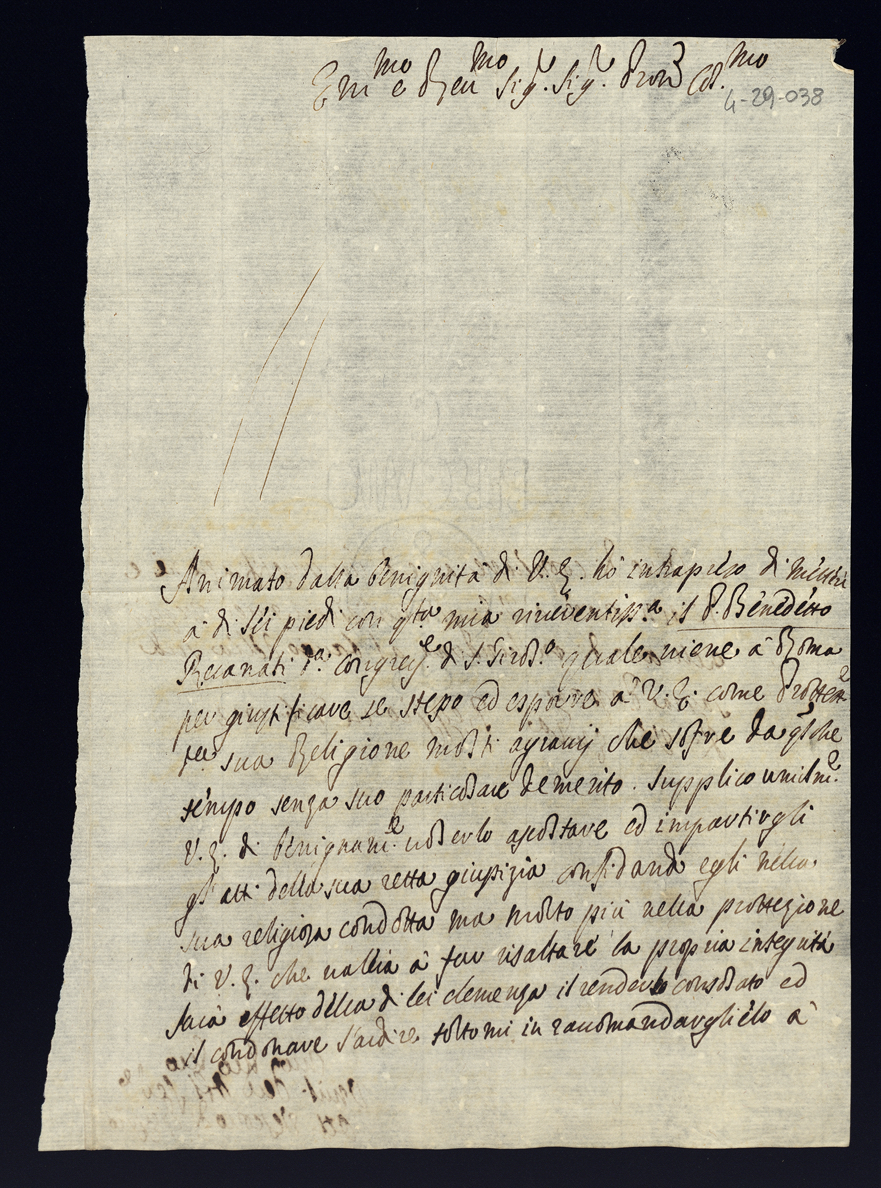 Em.mo e Reu.mo Sig.r Sig.r Pron Col.mo
4-29-038
Animato dalla benignità di V. E. hò intrapreso di
à di lei piedi con q.ta mia riuerentiss.a il P. Benedetto
Recanati d.a Congreg.e di S. Girol.o quale uiene à Roma
per giustificare se stesso ed esporre à V. E. come
sua Religione molti agrauij che sofre da qlche
tempo senza suo particolare demerito. Supplico umilm.e
V. E. di benignam.e uolerlo ascoltare ed impartirgli
gl'atti della sua retta giustizia confidando egli nella
sua religiosa condotta ma molto più nella protezione
di V. E. che uaglia à far risaltare la propria integrità
Sarà effetto della di lei clemenza il renderlo consolato ed
il condonare l'ardire toltomi in racomandarglielo à